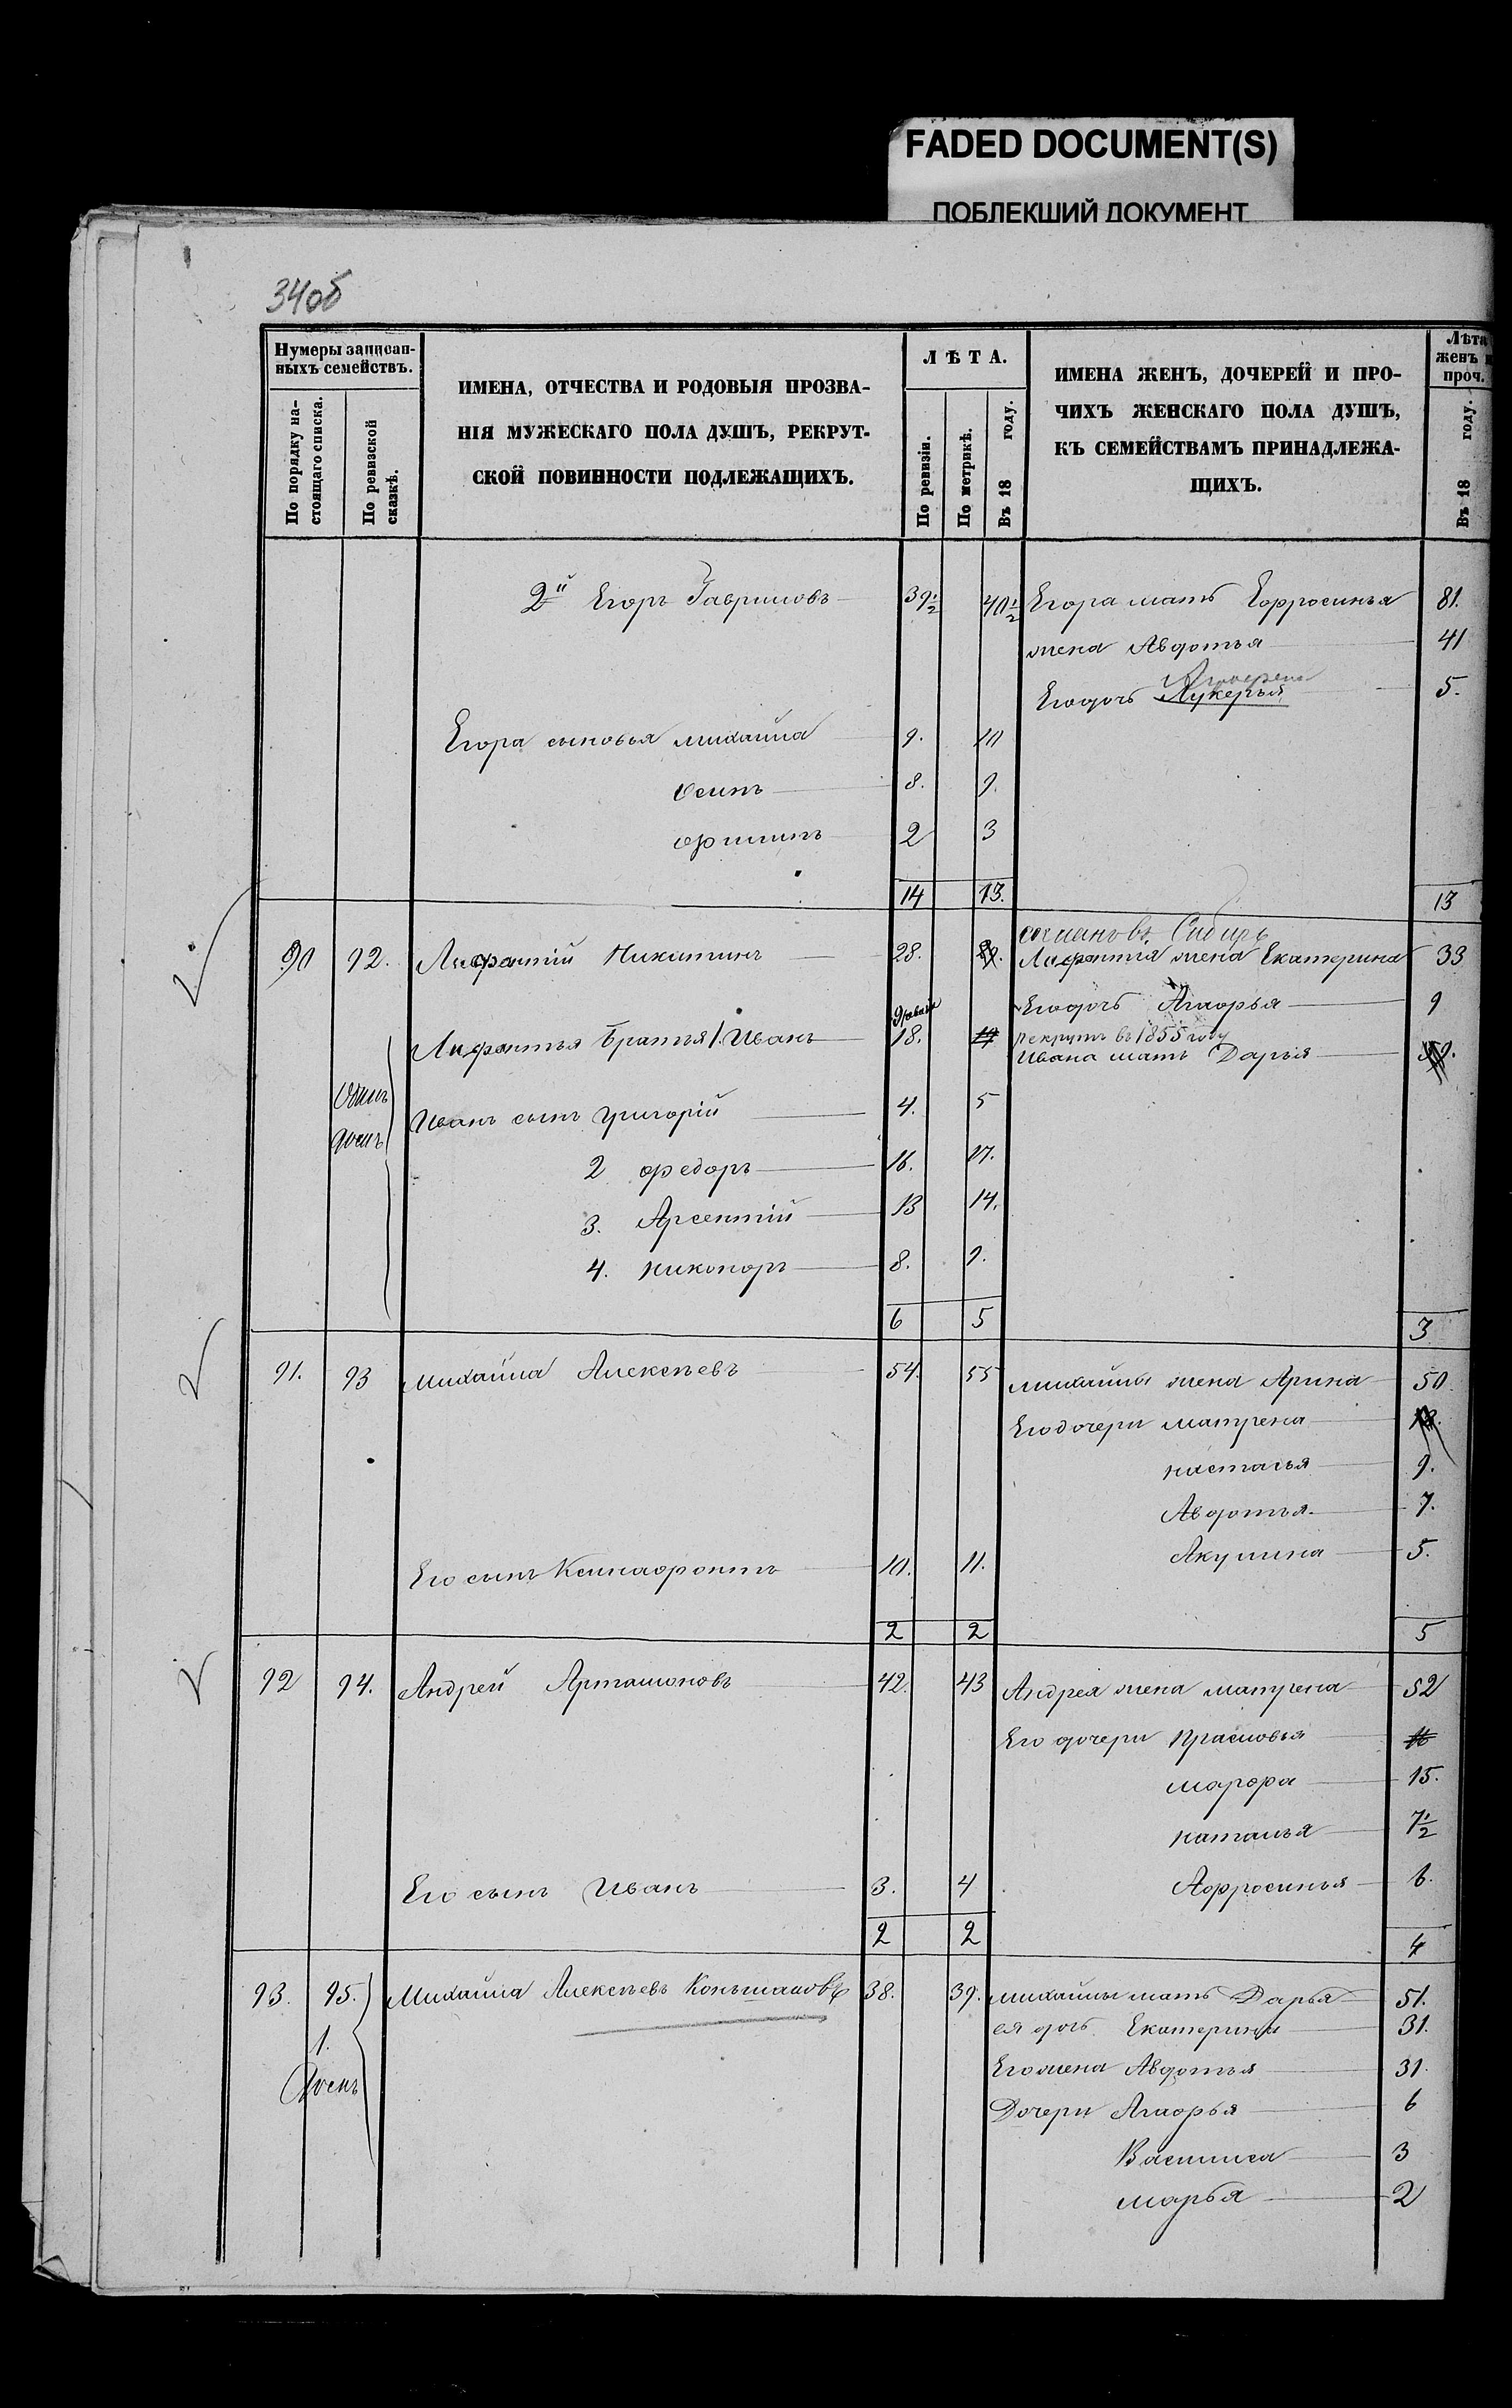 FADED DOCUMENT(S)
ПОБЛЕКШИЙ ДОКУМЕНТ
34об
Нумеры записан-
ныхъ семействъ.
По порядку на-
стоящаго списка.
По ревизской
сказкѣ.
ИМЕНА, ОТЧЕСТВА И РОДОВЫЯ ПРОЗВА-
НІЯ МУЖЕСКАГО ПОЛА ДУШЪ, РЕКРУТ-
СКОЙ ПОВИННОСТИ ПОДЛЕЖАЩИХЪ.
ЛѢТА.
По ревизіи.
По метрикѣ.
Въ 18 году.
ИМЕНА ЖЕНЪ, ДОЧЕРЕЙ И ПРО-
ЧИХЪ ЖЕНСКАГО ПОЛА ДУШЪ,
КЪ СЕМЕЙСТВАМЪ ПРИНАДЛЕЖА-
ЩИХЪ.
Лѣта
женъ и
проч.
Въ 18 году.
2й Егоръ Гавриловъ 39½ 40½ Егора мать Ефросинья 81.
жена Авдотья 41
Его дочь Лукерья 5.
Егора сыновья Михайла 9. 10
Осипъ 8. 9.
Филипъ 2 3
14 13. 13
сосланъ въ Сибирь
90 92. Лифантій Никитинъ 28. 29. Лифантія жена Екатерина 33
Его дочь Агафья 9
Рекрутъ въ 1855 году
Лифантья братья 1. Иванъ 18. 19 Ивана мать Дарья 59.
Одинъ
Иванъ сынъ Григорій 4. 5
2 Федоръ 16. 17.
3. Арсентій 13 14.
4. Никоноръ 8. 9.
6 5 3
91. 93 Михайла Алексѣевъ 54. 55 Михайлы жена Арина 50.
Его дочери Матрена 18.
Настасья 9.
Авдотья 7.
Акулина 5.
Его сынъ Ксинафонтъ 10. 11.
2 2 5
92 94. Андрей Артамоновъ 42. 43 Андрея жена Матрена 52
Его дочери Прасковья 16
Марфа 15.
Наталья 7½
Афросинья 6.
Его сынъ Иванъ 3. 4
2 2 4
93. 95. Михайла Алексѣевъ Коньшаковъ 38. 39. Михайлы мать Дарья 51.
ея дочь Екатерина 31.
1. Его жена Авдотья 31.
Дочери Агафья 6
Василиса 3
Марья 2